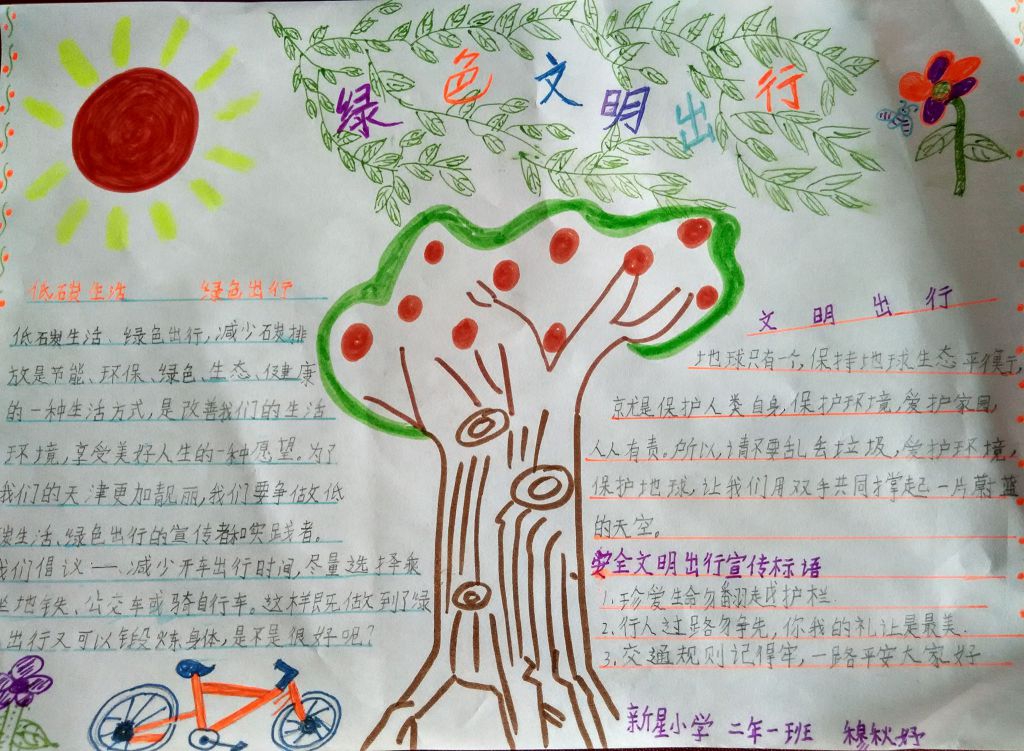 绿色文明出行
低碳生活 绿色出行
低碳生活、绿色出行,减少碳排
放是节能、环保、绿色、生态、健康
的一种生活方式,是改善我们的生活
环境,享受美好人生的一种愿望。为了
我们的天津更加靓丽,我们要争做低
碳生活、绿色出行的宣传者和实践者。
我们倡议——减少开车出行时间,尽量选择乘
坐地铁、公交车或骑自行车。这样既做到了绿
出行又可以锻炼身体,是不是很好呢?
文明出行
地球只有一个,保持地球生态平衡,
就是保护人类自身,保护环境,爱护家园,
人人有责。所以,请不要乱丢垃圾,爱护环境,
保护地球,让我们用双手共同撑起一片蔚蓝
的天空。
安全文明出行宣传标语
1.珍爱生命勿翻越护栏.
2.行人过路勿争先,你我的礼让是最美.
3.交通规则记得牢,一路平安大家好
新星小学 二年一班 穆秋妤